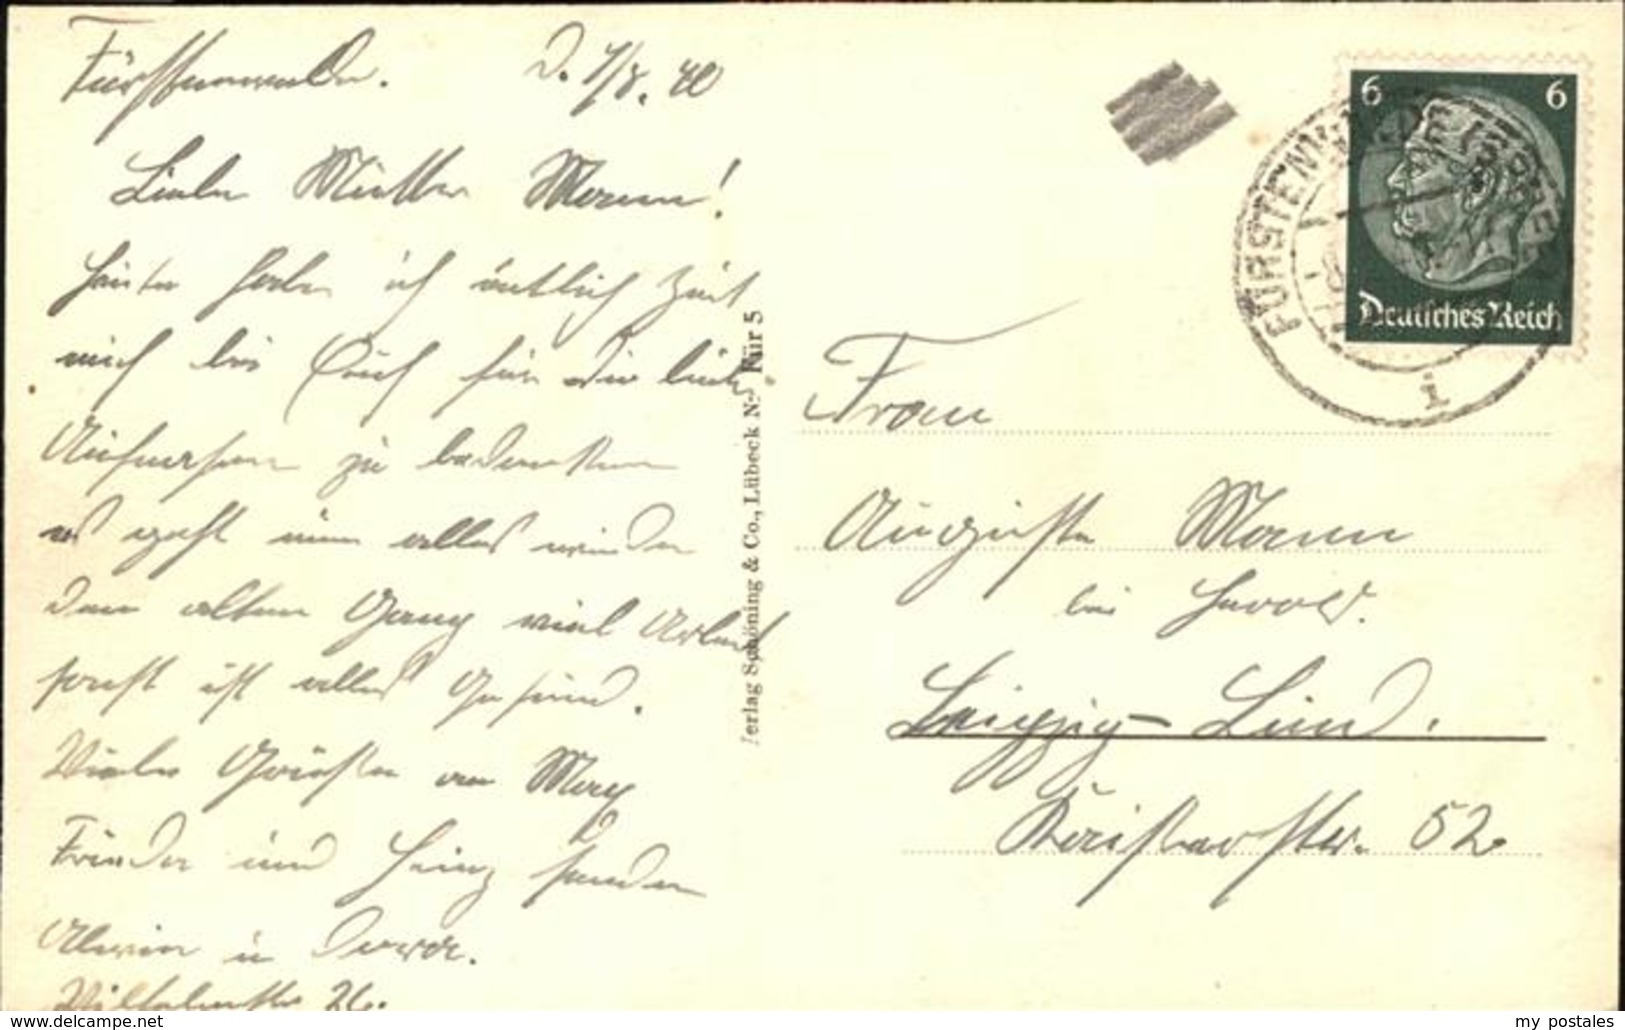 Fürstenwalde. D. 7/8. 40
Liebe Mutter Mann!
Heute habe ich endlich Zeit
mich bei Euch für die liebe
Aufnahme zu bedanken
es geht nun alles wieder
den alten Gang viel Arbeit
sonst ist alles Gesund.
Viele Grüße an Max
Frieda und Heinz senden
Alwin u
Wilhelmstr 26.
Verlag Schöning & Co., Lübeck Nr. Für 5
Frau
Auguste Mann
bei
Leipzig-Lind.
52
6 6
Deutsches Reich
FÜRSTENWALDE (SPREE)
i
www.delcampe.net
my postales